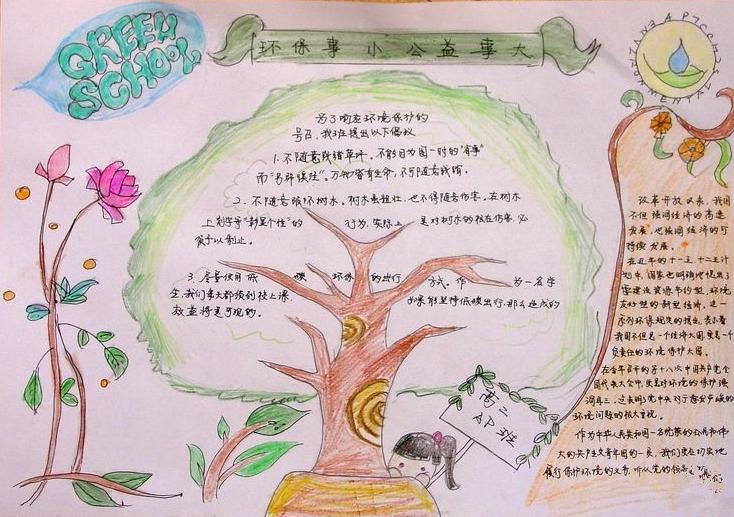 GREEN
SCHOOL
环保事小公益事大
为了响应环境保护的
号召,我班提出以下倡议
1.不随意践踏草坪。不能因为图一时的"省事"
而"另辟蹊径"。万物皆有生命,不可随意践踏。
2.不随意破坏树木。树木虽粗壮,也不得随意伤害。在树木
上刻字等"彰显个性"的行为,实际上是对树木的极大伤害,必
须予以制止。
3.尽量使用低碳环保的出行方式。作为一名学
生,我们每天都须到校上课,如果能坚持低碳出行,那么造成的
效益将是可观的。
高二
AP班
改革开放以来,我国
不但强调经济的高速
发展,也强调经济的可
持续发展。
在近年的十一五、十二五计
划中,国家也明确地提出了
要建设资源节约型、环境
友好型的新型经济。这一
系列环保规定的提出,表示着
我国不但是一个经济大国,更是一个
负责任的环境保护大国。
在今年召开的第十八次中国共产党全
国代表大会中,更是对环境的保护强
调再三。这表明党中央对于
环境问题的极大重视。
作为中华人民共和国一名优秀的公民和伟
大的共产主义青年团的一员,我们更应切实地
履行保护环境的义务,听从党的领导